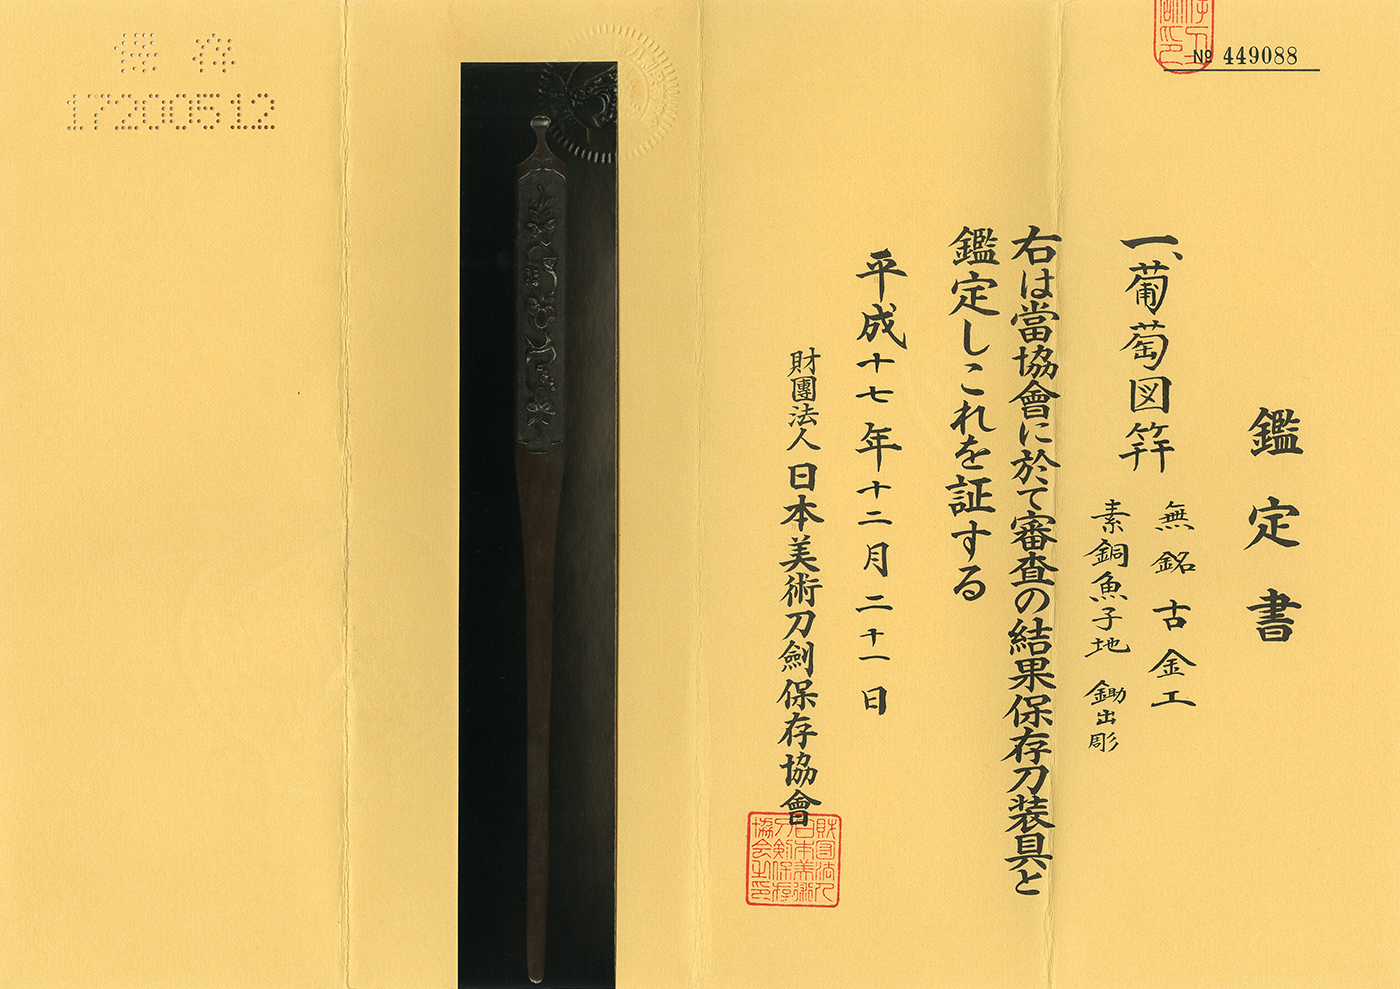 № 449088
鑑定書
一、葡萄図笄
無銘古金工
素銅魚子地 鋤出彫
右は當協會に於て審査の結果保存刀装具と
鑑定しこれを証する
平成十七年十二月二十一日
財團法人日本美術刀劍保存協會
財団法人
日本美術
刀剣保存
協会之印
保存
17200512